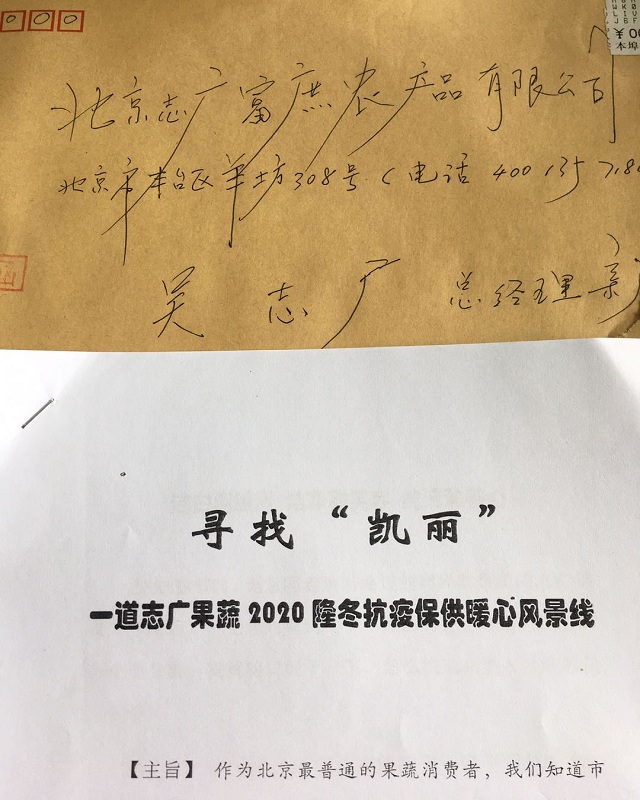 北京志广富庶农产品有限公司
北京市丰台区羊坊308号（电话 400 135
吴志广 总经理 亲
寻找“凯丽”
一道志广果蔬2020隆冬抗疫保供暖心风景线
【主旨】 作为北京最普通的果蔬消费者，我们知道市